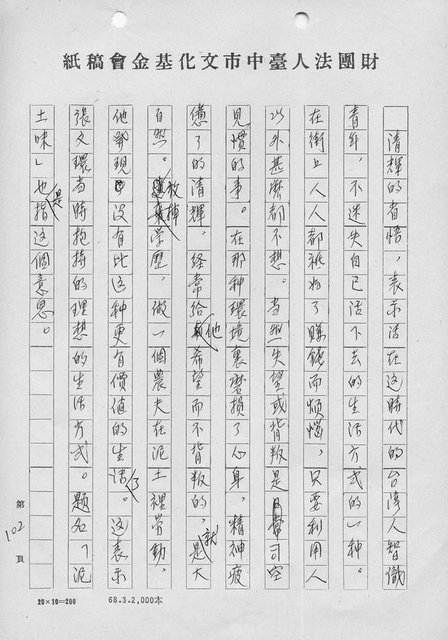 財團法人臺中市文化基金會稿紙
清輝的省悟，表示活在這時代的台湾人智識
青年，不迷失自己活下去的生活方式的一种。
在街上人人都祇為了賺錢而煩惱，只要利用人
以外甚麼都不想。当然失望或背叛是司空
見慣的事。在那种環境裏磨損了心身，精神疲
憊了的清輝，経常给他希望而不背叛的，就是大
自然。放掉学歷，做一個農夫在泥土裡劳動，
他發現没有比这种更有價值的生活了。这表示
張文環当時抱持的理想的生活方式。題名「泥
土味」也是指这個意思。
第102頁
20×10=200
68.3.2,000本